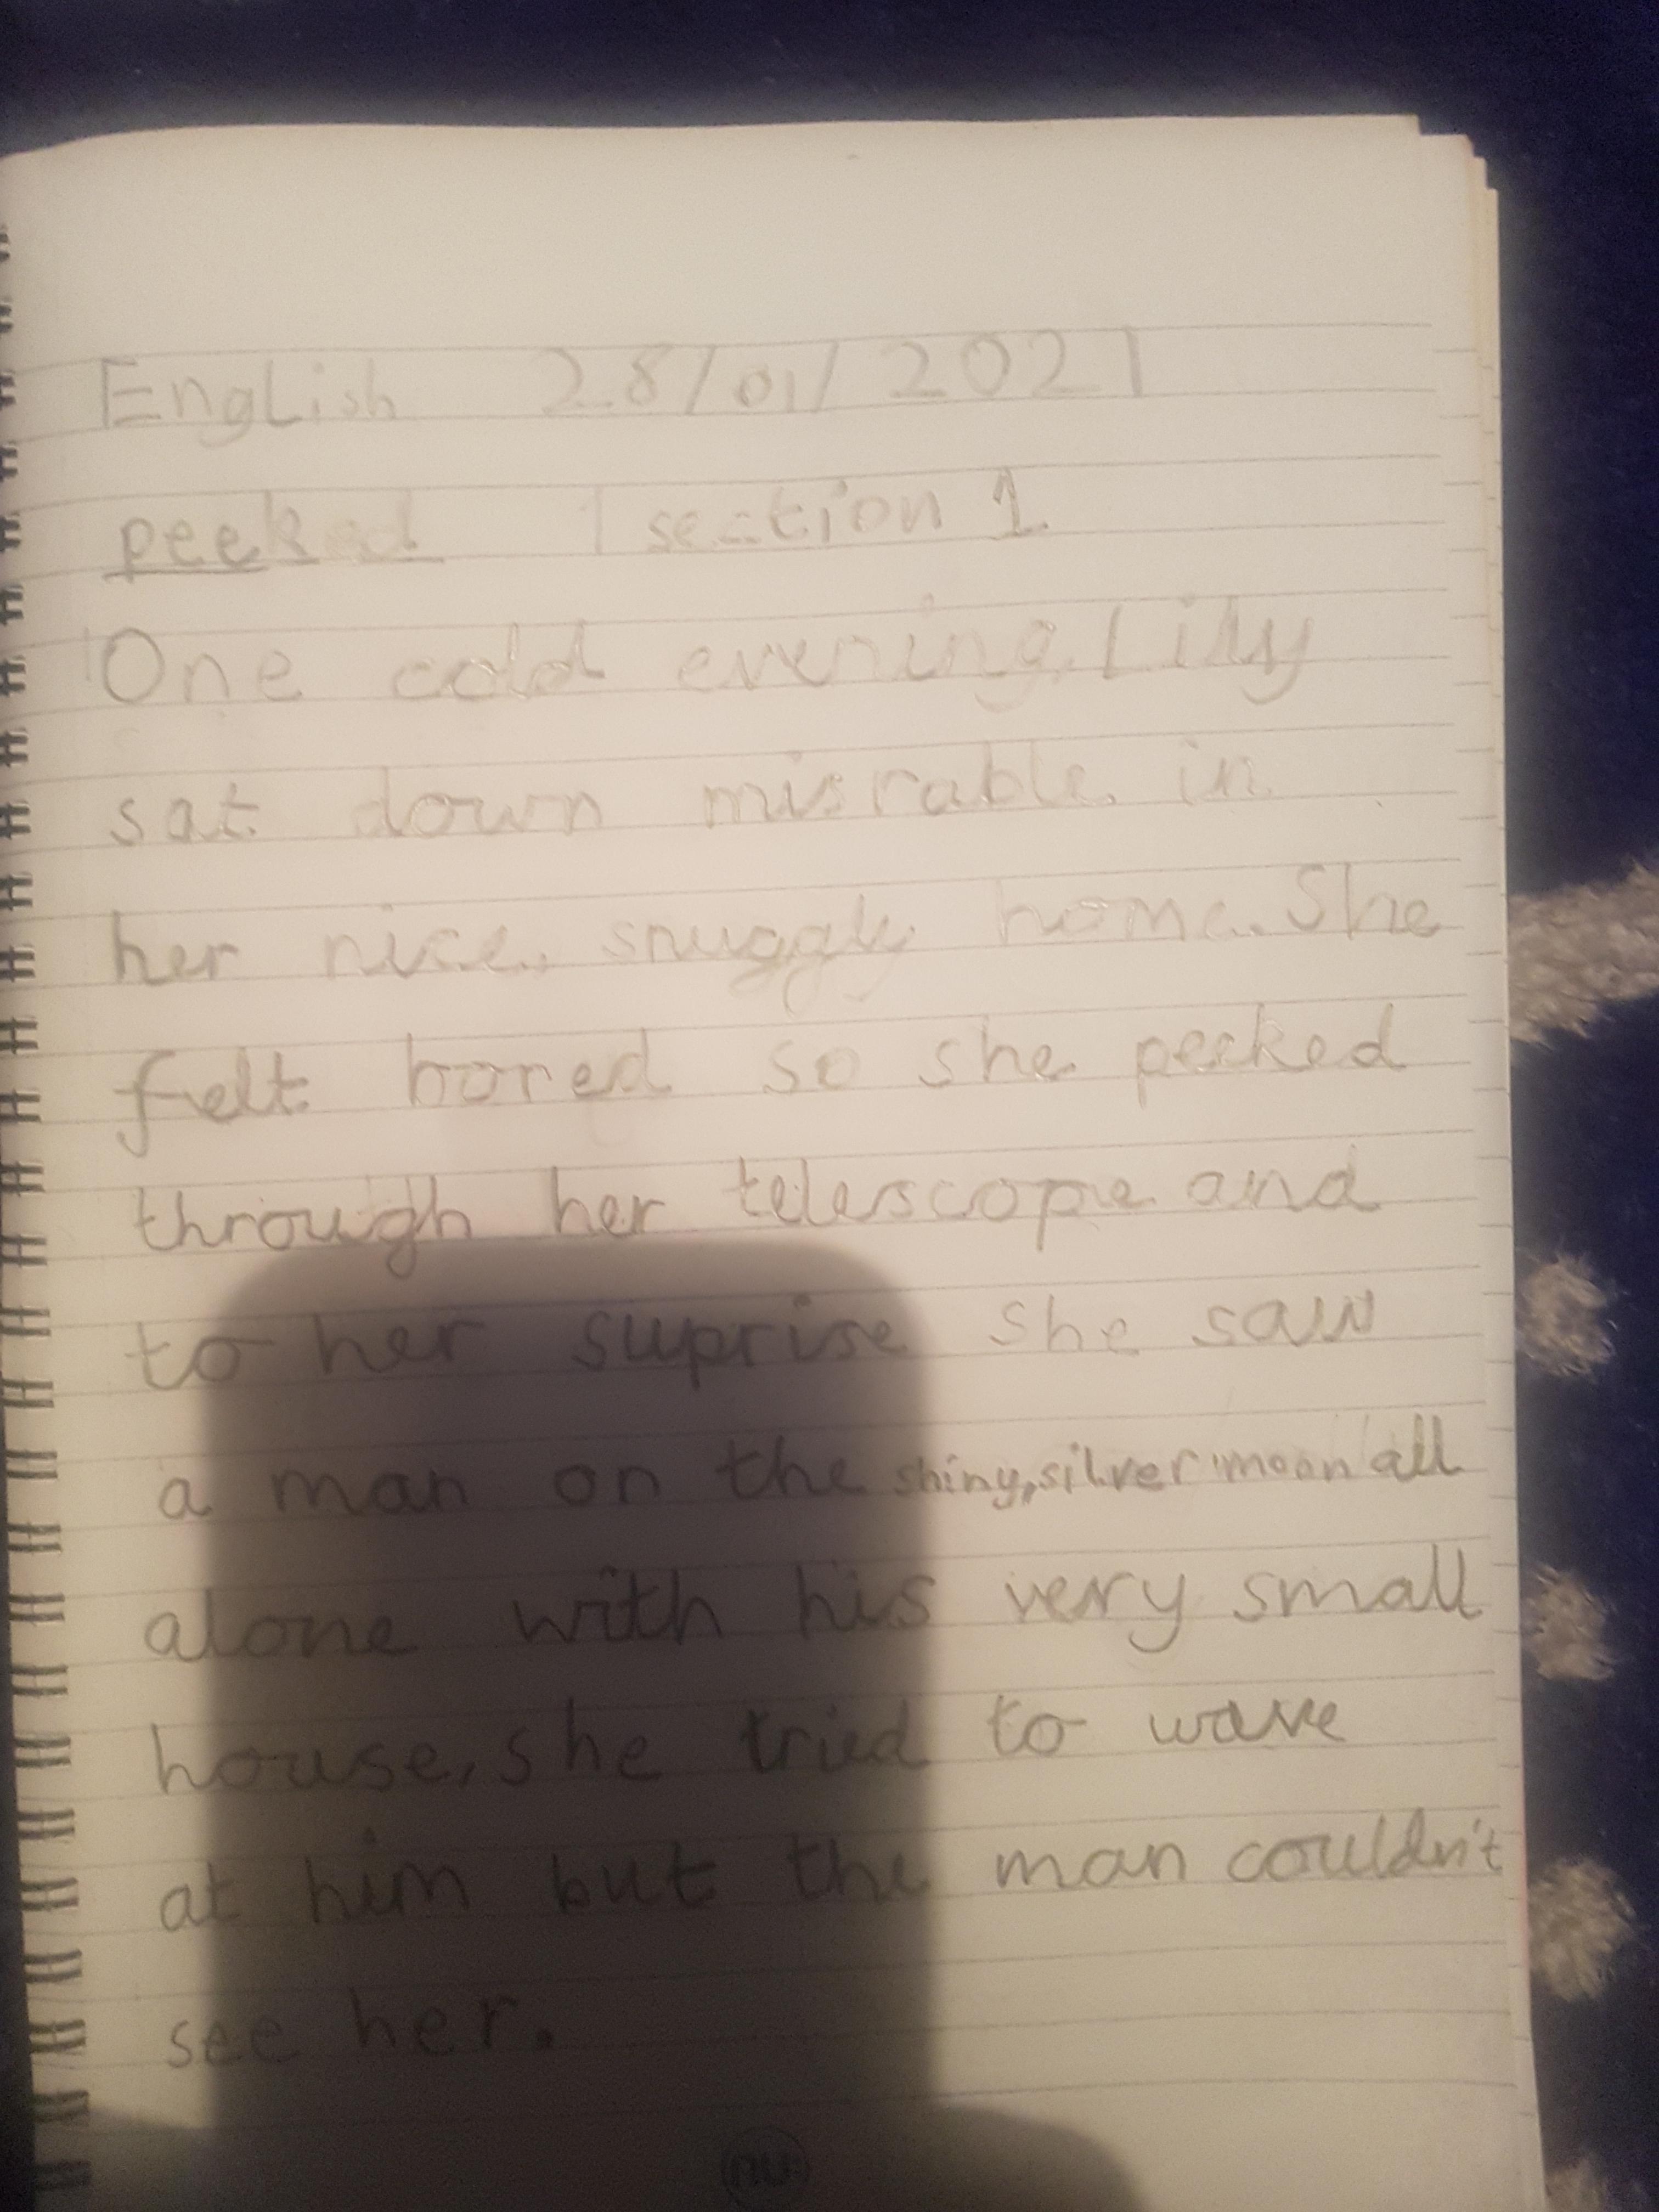 English 28/01/2021
peeked section 1
One cold evening, Lily
sat down misrable in
her nice, snuggly home. She
felt bored so she peeked
through her telescope and
to her suprise she saw
a man on the shiny, silver moon all
alone with his very small
house, she tried to wave
at him but the man couldn't
see her.
nu